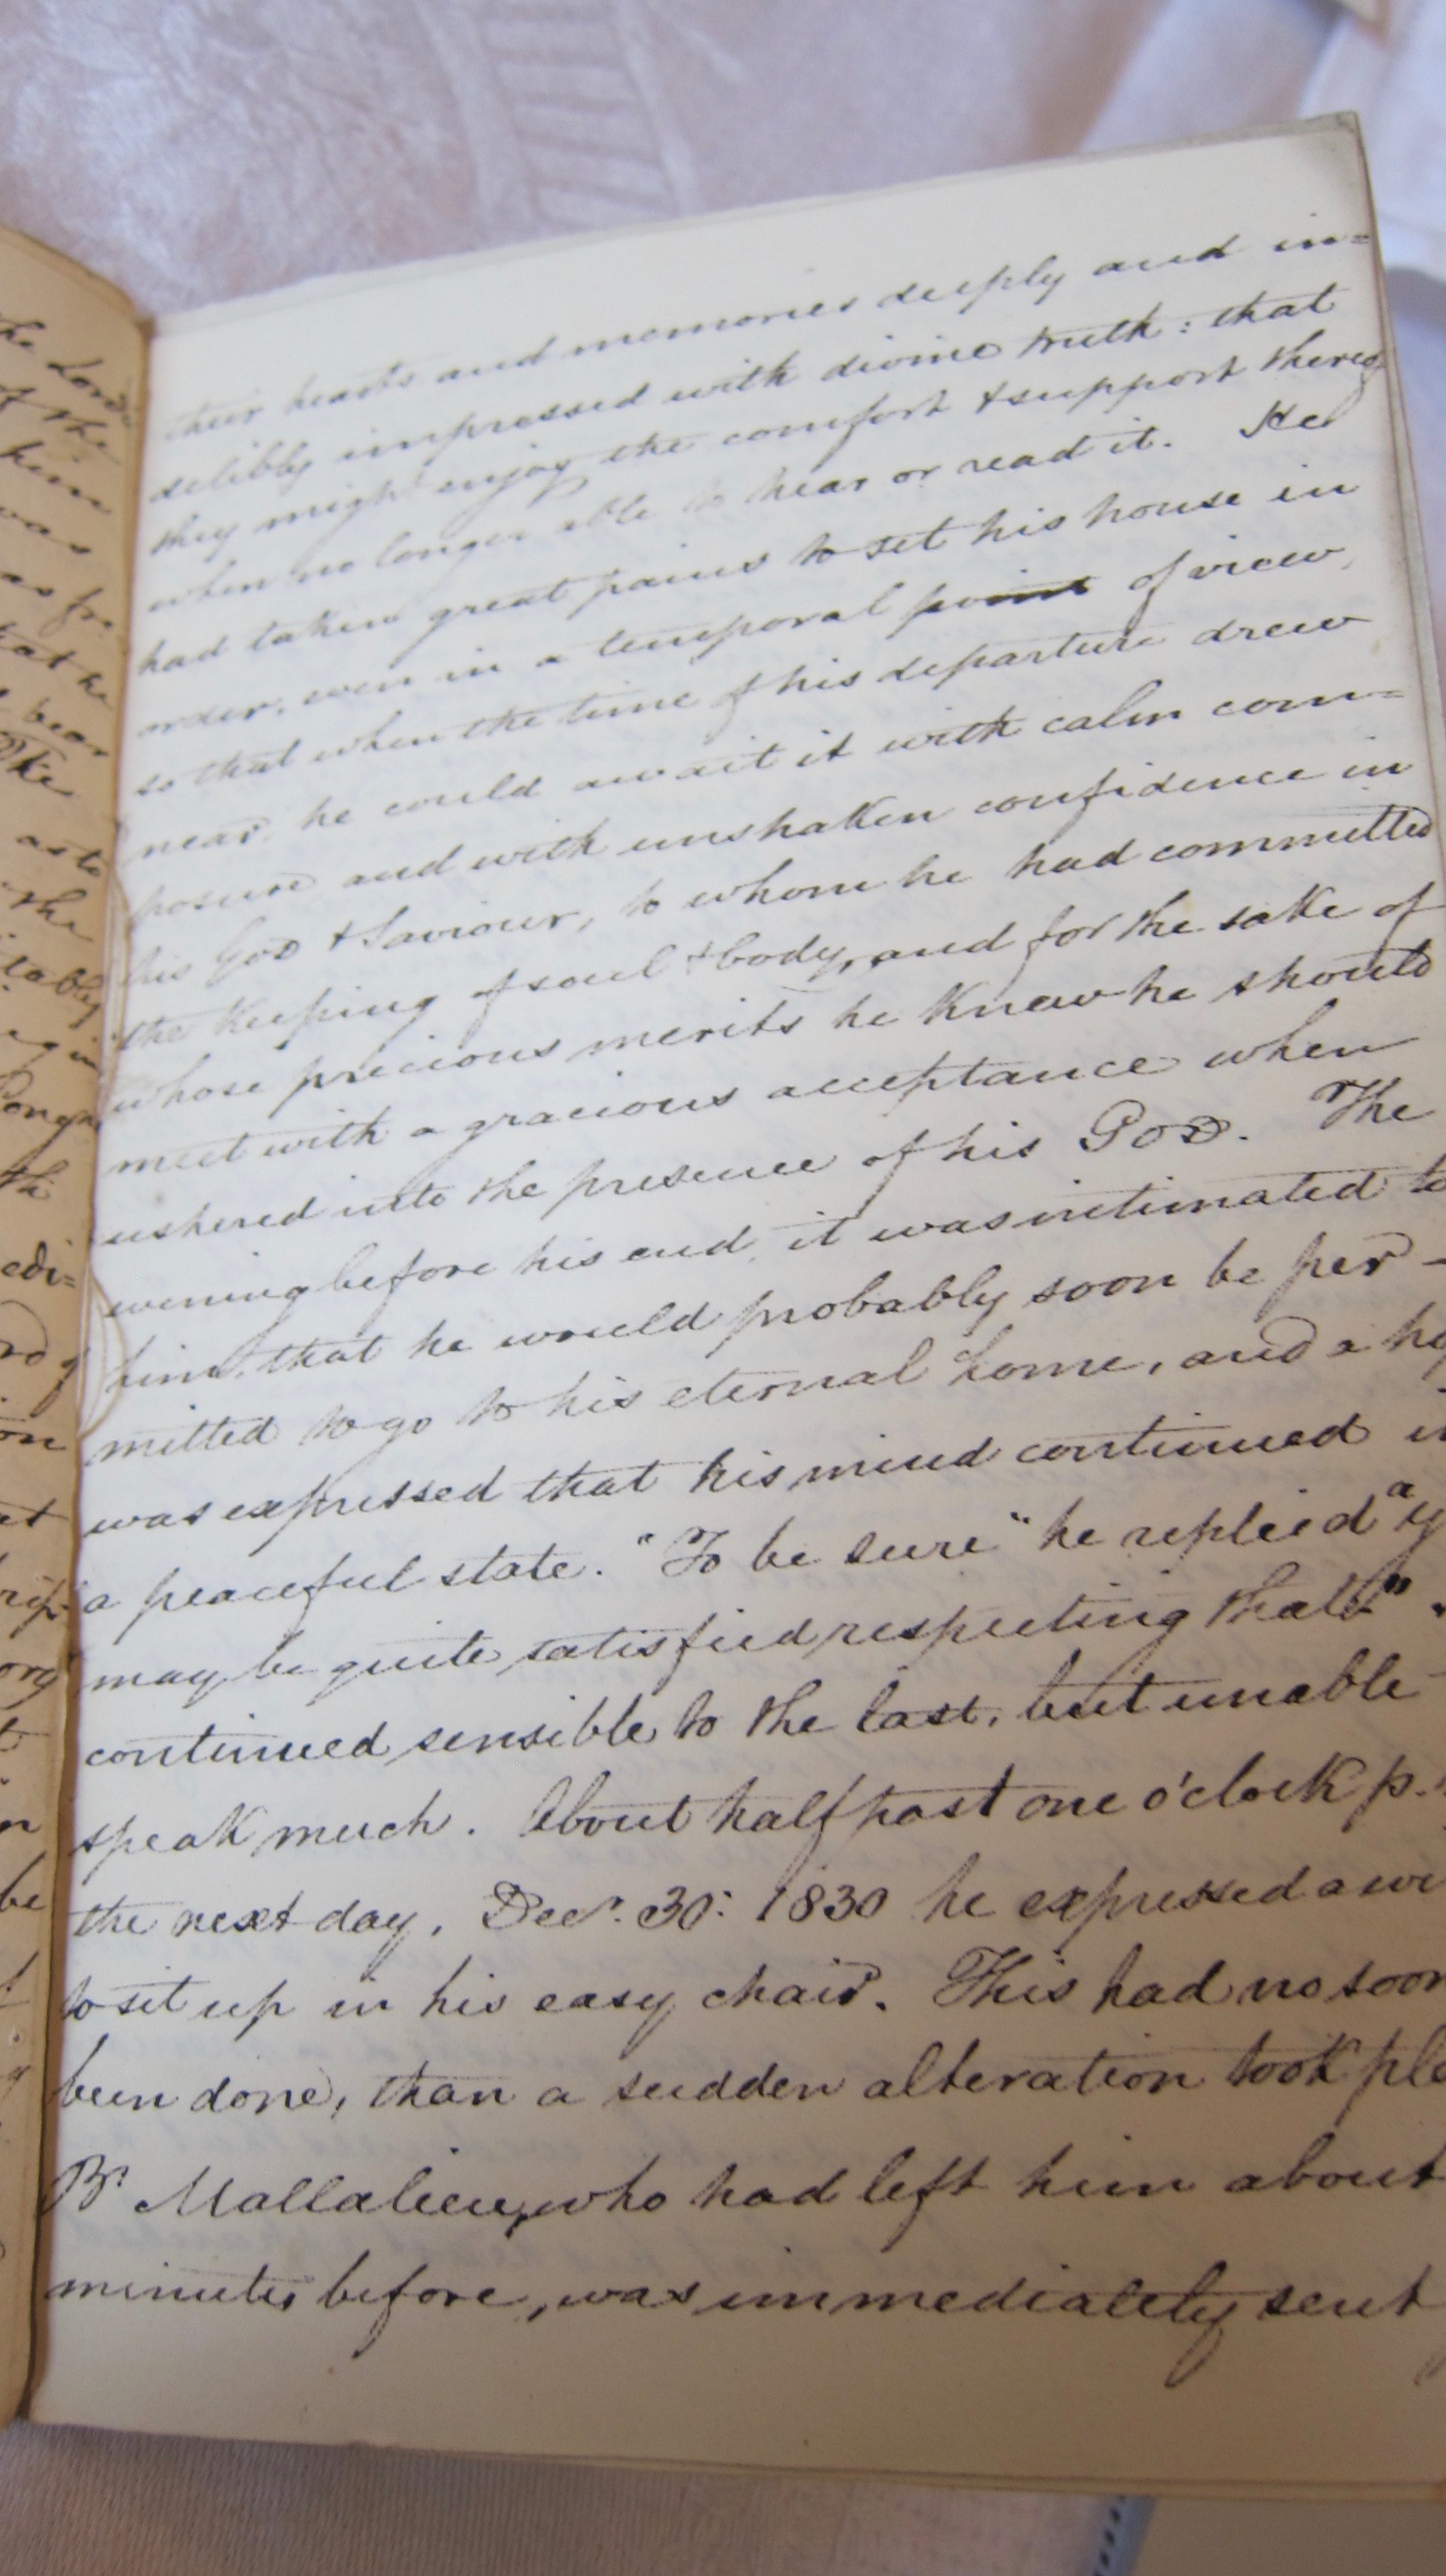 the Lord
of the
him
was
as fre
that he
bear
The
as to
the
tably
Congre
th
edi=
on
at
be
their hearts and memories deeply and in=
delibly impressed with divine truth: that
they might enjoy the comfort & support thereof
when no longer able to hear or read it. He
had taken great pains to set his house in
order, even in a temporal point of view,
so that when the time of his departure drew
near, he could await it with calm com=
posure and with unshaken confidence in
his God & Saviour, to whom he had committed
the keeping of soul & body, and for the sake of
whose precious merits he knew he should
meet with a gracious acceptance when
ushered into the presence of his God. The
evening before his end, it was intimated to
him, that he would probably soon be per-
mitted to go to his eternal home, and a ho
was expressed that his mind continued in
a peaceful state. "To be sure" he replied "y
may be quite satisfied respecting that."
continued sensible to the last, but unable
speak much. About half past one o'clock p.
the next day, Decr. 30: 1830 he expressed a wi
to sit up in his easy chair. This had no soon
been done, than a sudden alteration took pla
Br Mallalieu, who had left him about
minutes before, was immediately sent